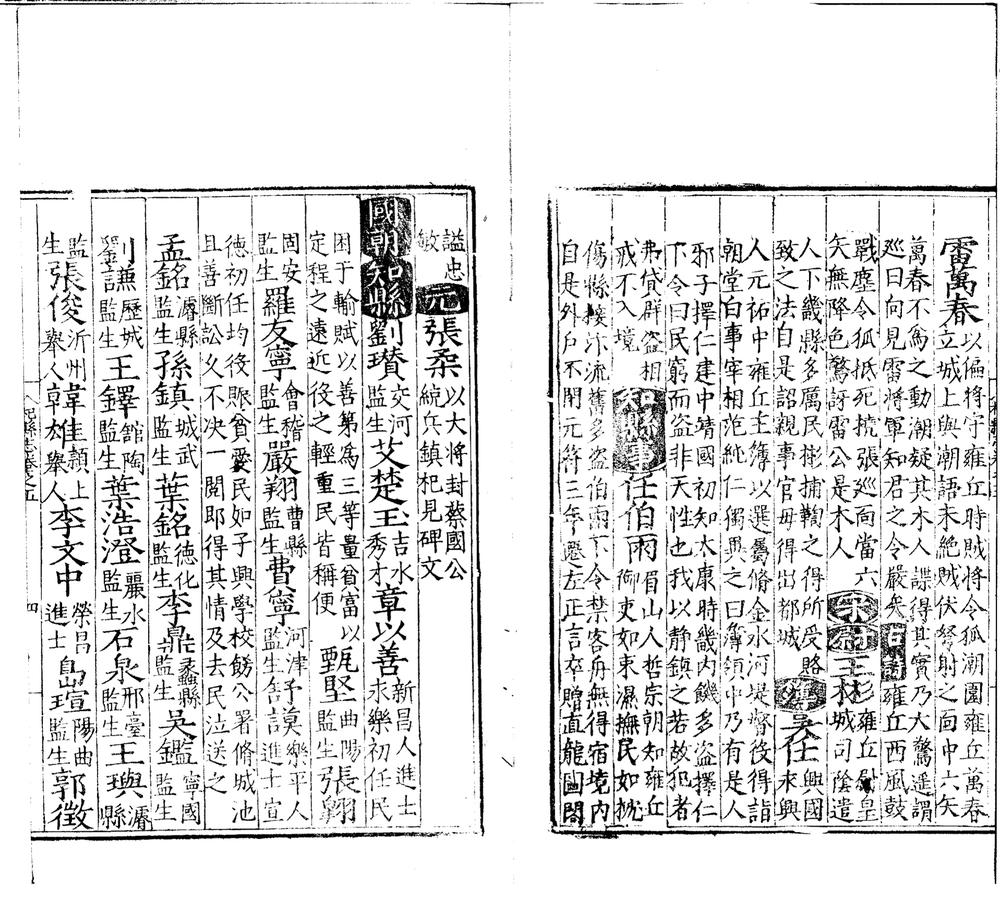 雷萬春以偏將守雍丘時賊將令狐潮圍雍丘萬春
立城上與潮語未絕賊伏弩射之面中六矢
萬春不為之動潮疑其木人諜得其實乃大驚遥謂
廵曰向見雷將軍知君之令嚴矣古詩雍丘西風鼓
戰塵令狐抵死撓張廵面當六
矢無降色驚訝雷公是木人
宋尉王彬雍丘尉皇
城司陰遣
人下畿縣多厲民彬捕鞫之得所受賂
致之法自是詔親事官毋得出都城
簿吴任興國
來興
人元祐中雍丘主簿以選屬脩金水河堤督役得詣
朝堂白事宰相范純仁獨異之曰簿領中乃有是人
邪子擇仁建中靖國初知太康時畿内饑多盗擇仁
下令曰民窮而盗非天性也我以静鎮之若故犯者
弗貸群盗相
戒不入境
知縣事任伯雨眉山人哲宗朝知雍丘
御吏如束濕撫民如撫
傷縣接汴流舊多盗伯雨下令禁客舟無得宿境内
自是外户不閉元符三年遷左正言卒贈直龍圖閣
謚忠
敏
元張柔以大將封蔡國公
統兵鎮杞見碑文
國朝知縣劉瓚交河監生艾楚玉吉水秀才章以善新昌人進士
永樂初任民
困于輸賦以善第為三等量貲富以
定程之遠近役之輕重民皆稱便
甄堅曲陽監生張翱
固安監生羅友寧會稽監生嚴翔曹縣監生費寧河津監生舒謨樂平人
進士宣
徳初任均役賑貧愛民如子興學校餙公署脩城池
且善斷訟久不决一閱即得其情及去民泣送之
孟銘濬縣監生孫鎮城武監生葉銘德化監生李鼎蠡縣監生吴鑑寧國監生
劉謙歷城監生王鐸館陶監生葉浩澄麗水監生石泉邢臺監生王璵濬縣
監生張俊沂州舉人韓雄潁上舉人李文中榮昌進士島瑄陽曲監生郭徵